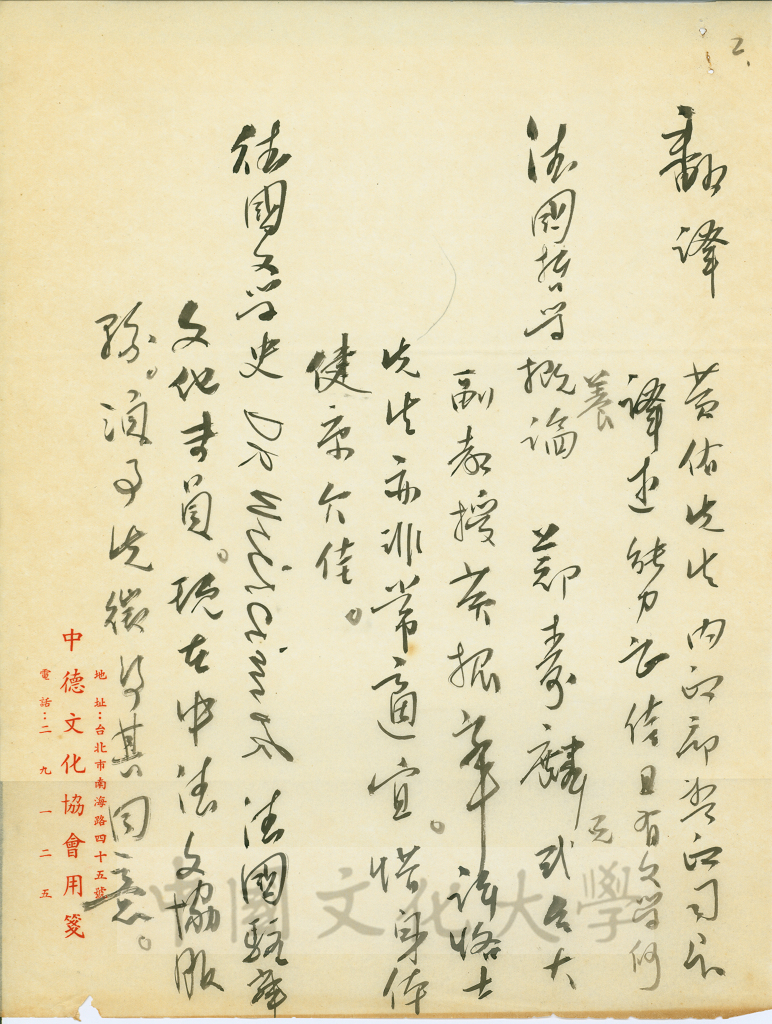 二、
翻譯
黃佑先生 內政部營政司長
譯述能力亦佳且有文學修
養
法國哲學概論 鄭壽麟 或台大
副教授黃振華
先生亦非常適宜。惜身体
健康欠佳。
德國文學史 DR 法國駐華
文化專員。現在中法文協服
務。須事先徵得其同意。
中德文化協會用箋
地址:台北市南海路四十五號
電話:二九一二五
中國文化大學